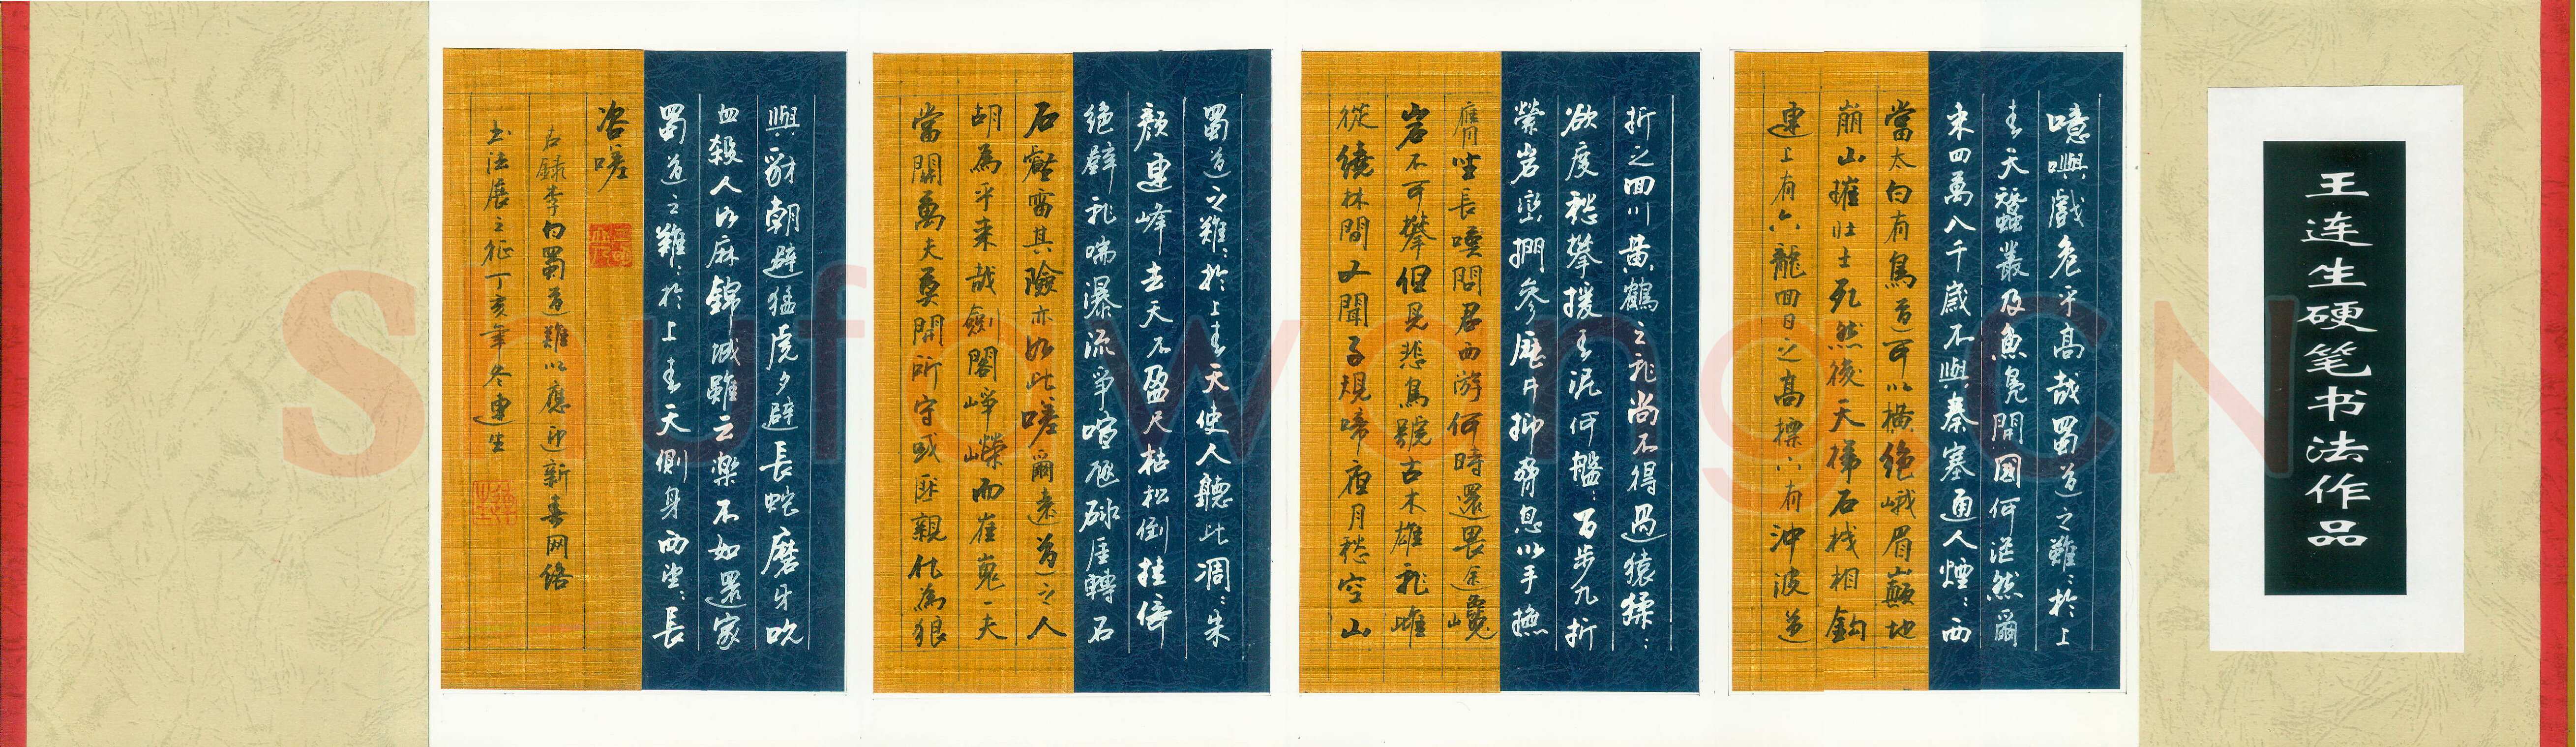 王连生硬笔书法作品
噫戲危乎高哉蜀道之難〻於上
青天蠶叢及魚鳧開國何茫然爾
来四萬八千歲不與秦塞通人煙〻西
當太白有鳥道可以橫絕峨眉巔地
崩山摧壯士死然後天梯石棧相鉤
連上有六龍回日之高標下有沖波逆
折之回川黃鶴之飛尚不得過猿猱〻
欲度愁攀援青泥何盤〻百步九折
縈岩巒捫參歷井仰脅息以手撫
膺坐長嘆問君西游何時還畏途巉
岩不可攀但見悲鳥號古木雄飛雌
從繞林間又聞子規啼夜月愁空山
蜀道之難〻於上青天使人聽此凋〻朱
顏連峰去天不盈尺枯松倒挂倚
絕壁飛喘瀑流爭喧豗砯崖轉石
石壑雷其險亦如此嗟爾遠道之人
胡為乎来哉劍閣崢嶸而崔嵬一夫
當關萬夫莫開所守或匪親化為狼
與豺朝避猛虎夕避長蛇磨牙吮
血殺人如麻錦城雖云樂不如還家
蜀道之難〻於上青天側身西望〻長
咨嗟
右録李白蜀道難以應迎新春网络
书法展之征丁亥年冬連生
Shufawang.CN